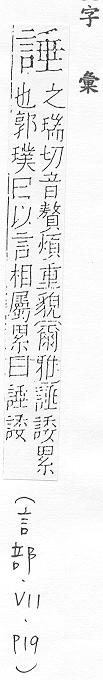 字彙
諈
之瑞切音贅煩重貌爾雅諈諉累
也郭璞曰以言相屬累曰諈諉
(言部.VII.P19)